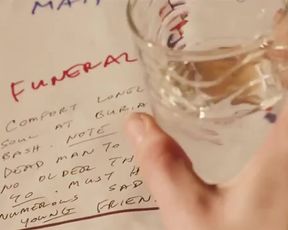 MA
FUNERAL
COMFORT LONEL
SOUL AT BURIA
BASH. NOTE
DEAD MAN TO
NO OLDER TH
40. MUST H
NUMEROUS SAD
YOUNG FRIEN.